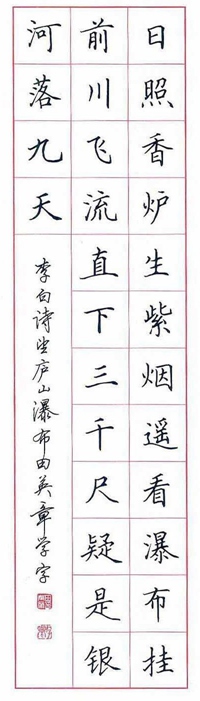 日照香炉生紫烟遥看瀑布挂
前川飞流直下三千尺疑是银
河落九天
李白诗望庐山瀑布由英章学字